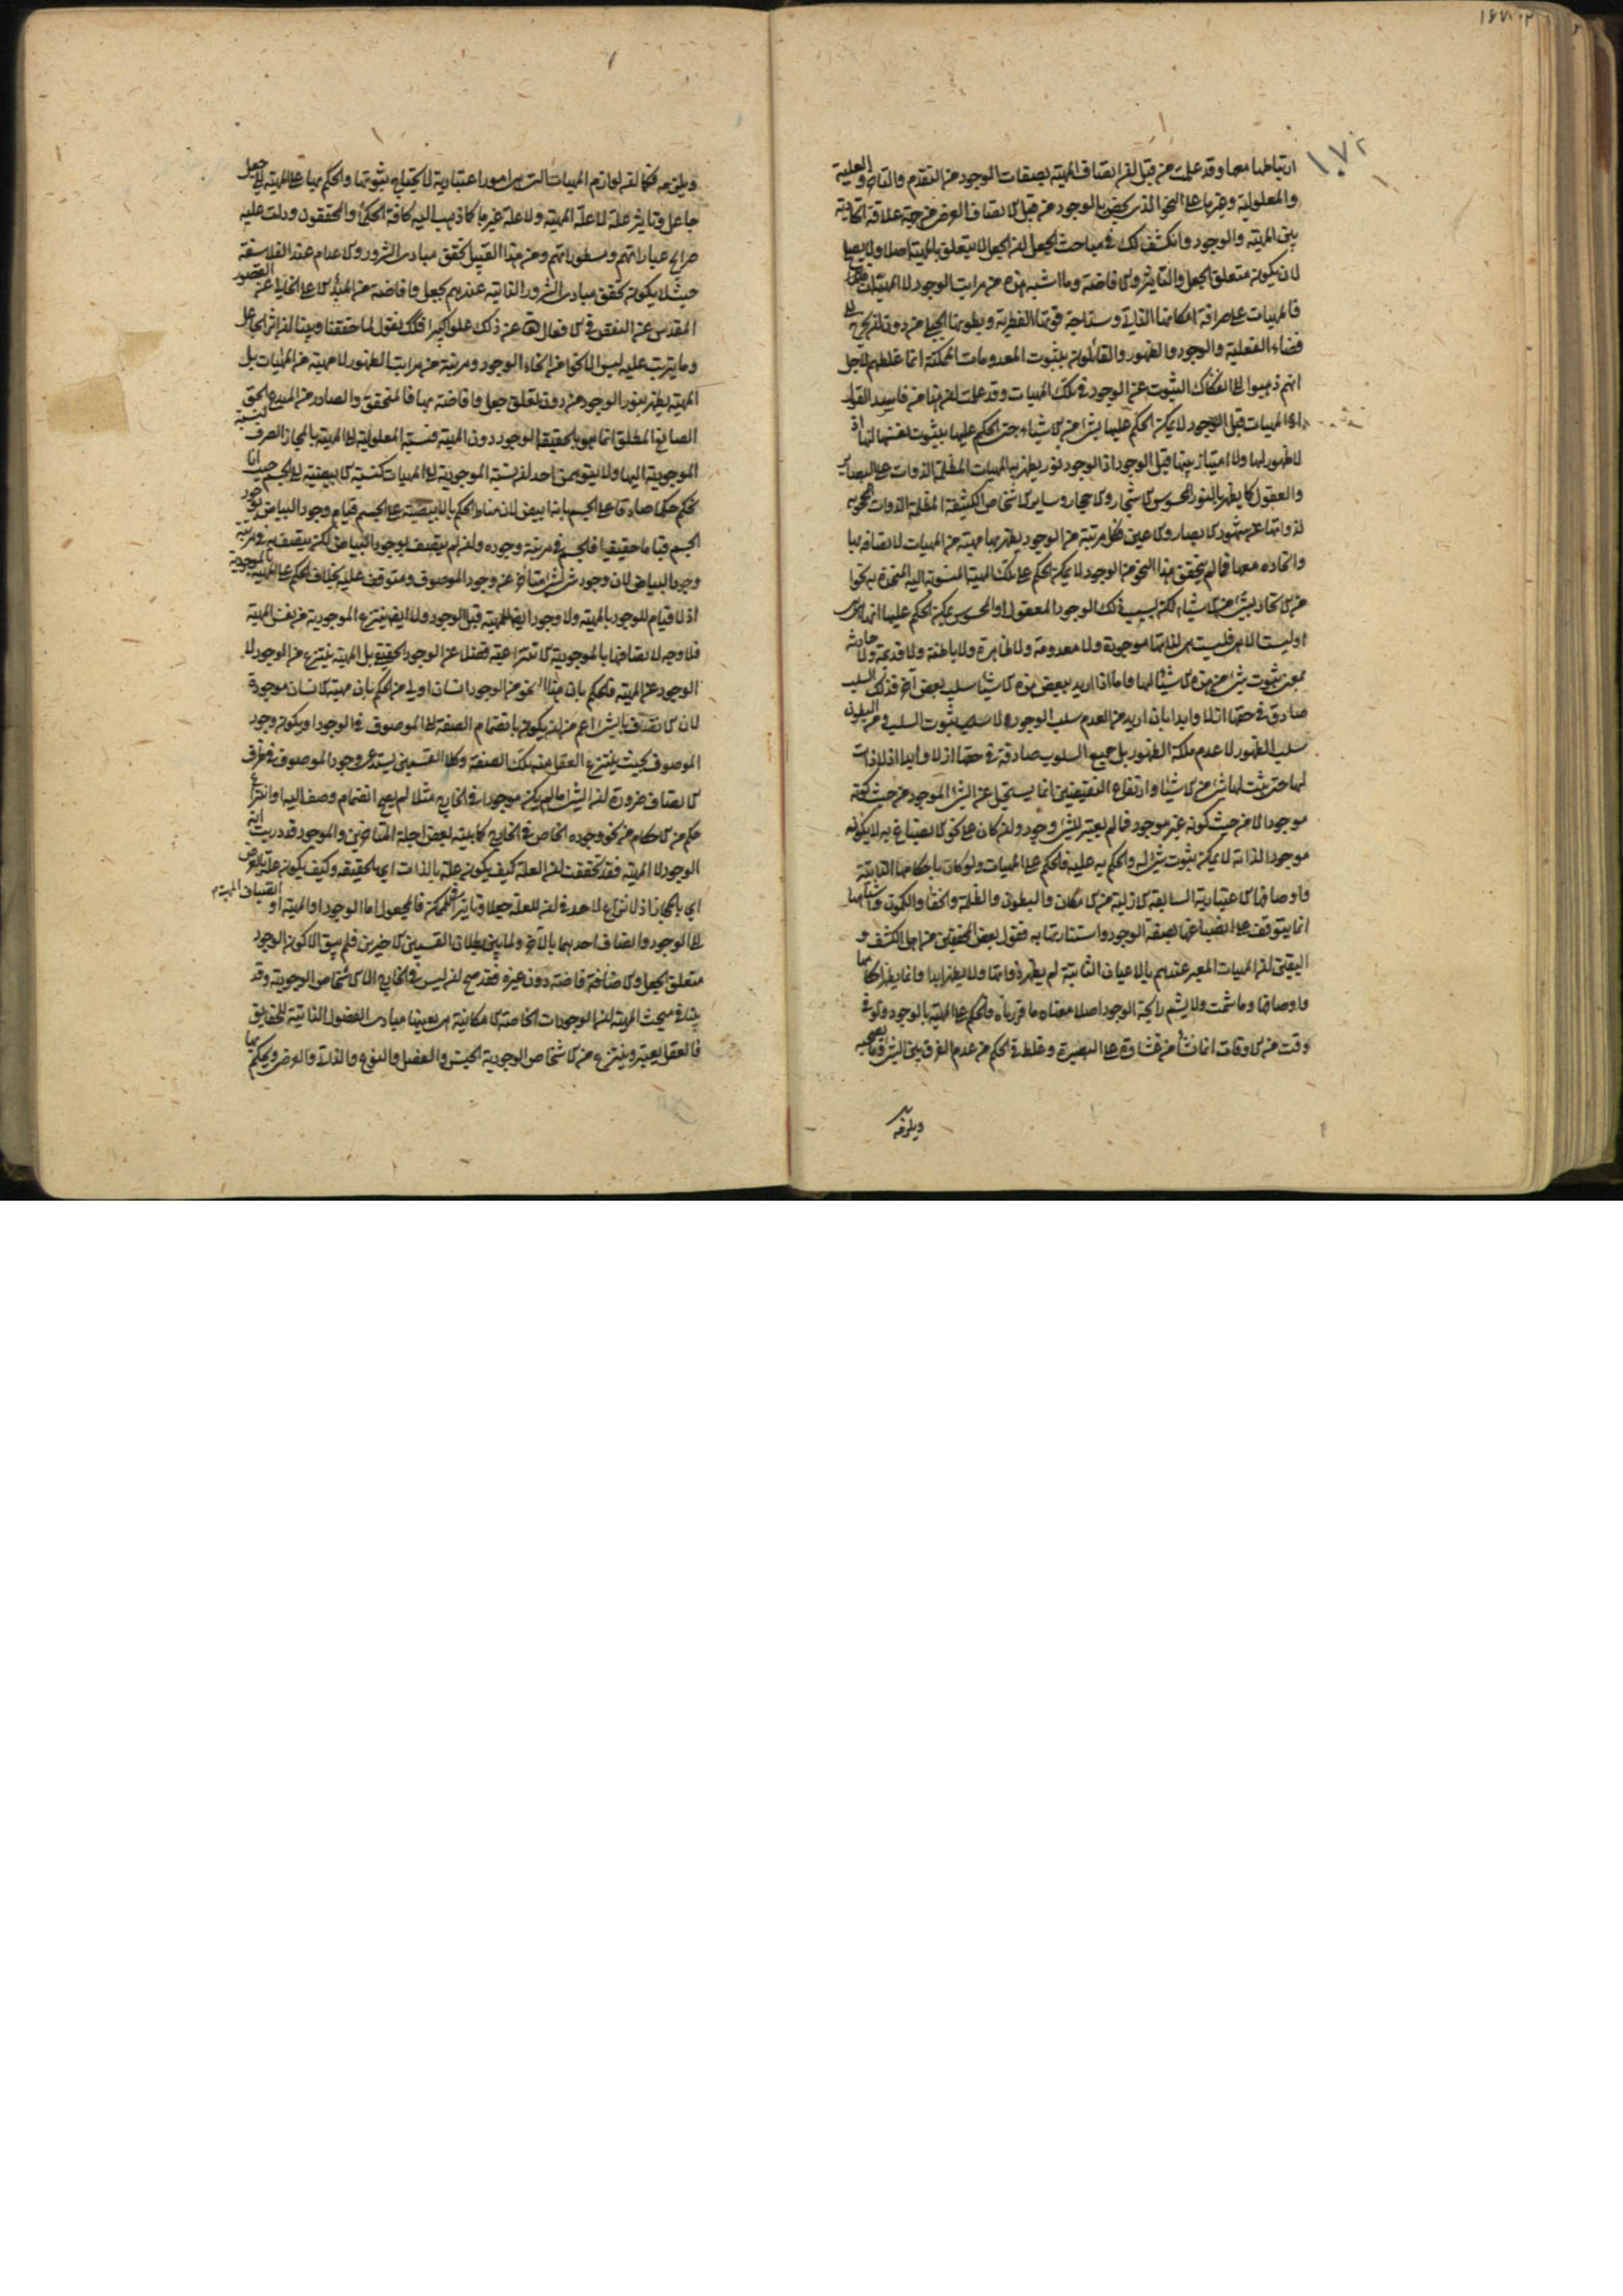 ١٧٢
ارتباطها معها وقد علمت من قبل ان اتصاف المهية بصفات الوجود من التقدم والتاخر والعلية
والمعلولية وغيرها على النحو الذي يخص بالوجود من قبل الاتصاف العرض من جهة علاقة اتحادية
بين المهية والوجود وانكشف لك في مباحث الجعل ان الجعل لا يتعلق بالمهية اصلا ولا يصلح
لان يكون متعلق الجعل والتاثير والافاضة وما اشبه هذه من مراتب الوجود لا المهيات
فالمهيات على صرافة امكانها الذاتي وسذاجة قوتها الفطرية وبطونها الجبلي من دون ان يخرج الى
فضاء الفعلية والوجود والظهور والقائلون بثبوت المعدومات الممكنة انما غلطهم لاجل
انهم ذهبوا الى انفكاك الثبوت عن الوجود في تلك المهيات وقد علمت ان هذا من فاسد القول
اذ المهيات قبل الوجود لا يمكن الحكم عليها بشئ من الاشياء حتى الحكم عليها بثبوت نفسها لها اذ
لا ظهور لها ولا امتياز بينها قبل الوجود اذ الوجود نور يظهر به المهيات المظلمة الذوات على البصائر
والعقول كما يظهر بالنور المحسوس الاشجار والاحجار وسائر الاشخاص الكثيفة المظلمة الذوات المحجوبة
لذواتها عن شهود الابصار والاعين فكل مرتبة من الوجود يظهر بها مهية من المهيات لاتصافه بها
واتحاده معها فما لم يتحقق هذا النحو من الوجود لا يمكن الحكم على تلك المهية المنسوبة اليه المتحدة به نحوا
من الاتحاد بشئ من الاشياء لكن بسبب ذلك الوجود المعقول او المحسوس يمكن الحكم عليها انها هي هي
او ليست الا هي فليست هي لذاتها موجودة ولا معدومة ولا ظاهرة ولا باطنة ولا قديمة ولا حادثة
بمعنى ثبوت شئ من هذه الاشياء لها واما اذا اريد ببعض هذه الاشياء سلب بعض آخر فذلك السلب
صادق في حقها ازلا وابدا بان اريد من العدم سلب الوجود لا ثبوت السلب ومن البطون
سلب الظهور لا عدم ملكة الظهور بل جميع السلوب صادقة في حقها ازلا وابدا اذ لا ذات
لها حتى يثبت لها شئ من الاشياء وارتفاع النقيضين انما يستحيل عن الشئ الموجود من حيث كونه
موجودا لا من حيث كونه غير موجود فما لم يعتبر للشئ وجود وان كان على نحو الانصباغ به لا يكونه
موجودا لذاته لا يمكن ثبوت شئ له والحكم به عليه فالحكم على المهيات ولو كان باحكامها الذاتية
واوصافها الاعتبارية السابقة الازلية من الامكان والبطون والظلمة والخفاء والكمون واشباهها
انما يتوقف على انصباغها بصبغة الوجود واستنارتها به فقول بعض المحققين من اهل الكشف و
اليقين ان المهيات المعبر عندهم بالاعيان الثابتة لم يظهر ذواتها ولا يظهر ابدا وانما يظهر احكامها
واوصافها وما شمت ولا يشم رائحة الوجود اصلا معناه ما قررناه والحكم على المهية بالوجود ولو في
وقت من الاوقات انما نشأ من غشاوة على البصيرة وغلط في الحكم من عدم الفرق بين الشئ وما يصحبه
ويلزمه
ويلزمه فكما ان لوازم المهيات التي هي امور اعتبارية لا يحتاج ثبوتها والحكم بها على المهية الى جعل
جاعل وتاثير علة لا علة المهية ولا علة غيرها كما ذهب اليه كافة الحكماء والمحققون ودلت عليه
صرايح عباراتهم ومسطوراتهم ومن هذا القبيل تحقق مبادي الشرور والاعدام عند الفلاسفة
حيث لا يكون تحقق مبادي الشرور الذاتية عندهم بجعل وافاضة من المبدأ الاعلى الخالي عن القصور
المقدس عن النقص في الافعال تعالى عن ذلك علوا كبيرا فكك نقول لما حققنا وبينا ان اثر الجاعل
وما يترتب عليه ليس الا نحوا من انحاء الوجود ومرتبة من مراتب الظهور لا مهية من المهيات بل
المهية يظهر بنور الوجود من دون تعلق جعل وافاضة بها فالمتحقق والصادر من المبدع الحق
الصانع المطلق انما هو بالحقيقة الوجود دون المهية فنسبة المعلولية الى المهية بالمجاز الصرف كنسبة
الموجودية اليها ولا يتوهمن احد ان نسبة الموجودية الى المهيات كنسبة الابيضية الى الجسم حيث انا
نحكم حكما صادقا على الجسم بانه ابيض لان مناط الحكم بالابيضية على الجسم قيام وجود البياض بوجود
الجسم قياما حقيقيا فالجسم في مرتبة وجوده وان لم يتصف بوجود البياض لكن يتصف به في مرتبة
وجود البياض لان وجود شئ لشئ متاخر عن وجود الموصوف ومتوقف عليه بخلاف الحكم على المهية بالموجودية
اذ لا قيام للوجود بالمهية ولا وجود ايضا للمهية قبل الوجود ولا ايضا ينتزع الموجودية من نفس المهية
فلا وجه لاتصافها بالموجودية الانتزاعية فضلا عن الوجود الحقيقي بل المهية ينتزع من الوجود لا
الوجود عن المهية فالحكم بان هذا النحو من الوجود انسان اولى من الحكم بان مهية الانسان موجودة
لان الاتصاف بالشئ اعم من ان يكون بانضمام الصفة الى الموصوف في الوجود او يكون وجود
الموصوف بحيث ينتزع العقل منه تلك الصفة وكلا القسمين يستدعي وجود الموصوف في ظرف
الاتصاف ضرورة ان الشئ ما لم يكن موجودا في الخارج مثلا لم يصح انضمام وصف اليه او انتزاع
حكم من الاحكام من نحو وجوده الخاص في الخارج كما بينه بعض اجلة المتاخرين والموجود قد دريت انه
الوجود لا المهية فقد تحققت ان العلة كيف يكون علة بالذات اي بالحقيقه وكيف يكون علة بالعرض
اي بالمجاز اذ لا نزاع لاحد في ان للعلة جعلا وتاثيرا في الممكن فالمجعول اما الوجود او المهية او انضياف المهية
الى الوجود واتصاف احدهما بالآخر ولما تبين بطلان القسمين الاخيرين فلم يبق الا كون الوجود
متعلق الجعل والافاضة دون غيره فقد صح ان ليس في الخارج الا الاشخاص الوجودية وقد
بينا في مبحث المهية ان الوجودات الخاصة الامكانية هي بعينها مبادي الفصول الذاتية للحقايق
فالعقل يعتبر وينتزع من الاشخاص الوجودية الجنس والفصل والنوع والذاتي والعرضي ويحكم بها